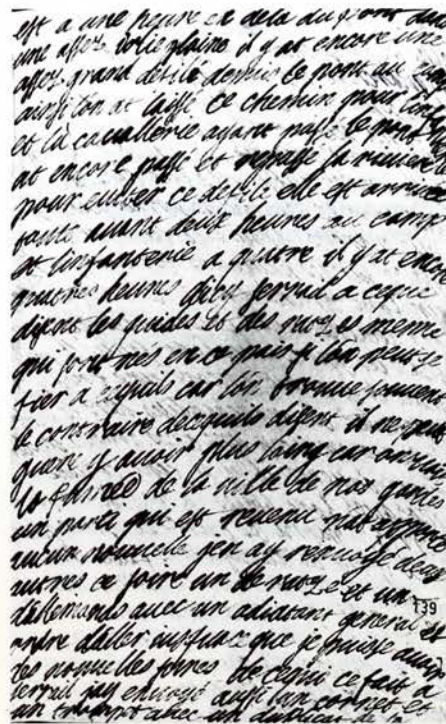 est a une heure et dela du pont dans
une assez iolie plaine il y at encore une
assez grand defilé depuis le pont au
ainsi lon at laissé ce chemin pour linf
et la cauallerie ayant passé le pont
at encore passé et repassé la riuiere
pour euiter ce defile elle est arriuee
toute auant deux heures au camp
et linfanterie a quatre il y at encor
quatres heures dicy a ceque
disent les guides et des meme
qui sont nés en ce pais si lon peut se
fier a cequils car lon trouue souuent
le contraire decequils disent il ne peut
guere y auoir plus loing car on
de la ville de nos
un parti qui est reuenu nat appris
aucun nouuelle jen ay renuoyé deux
autres ce soire un de et un
dallemands auec un adiutant general et
ordre daller iusqua ce que je puisse auoir
des nouuelles de cequi ce fait a
jay enuoyé aussi un cornet et
un trompet auec un
139